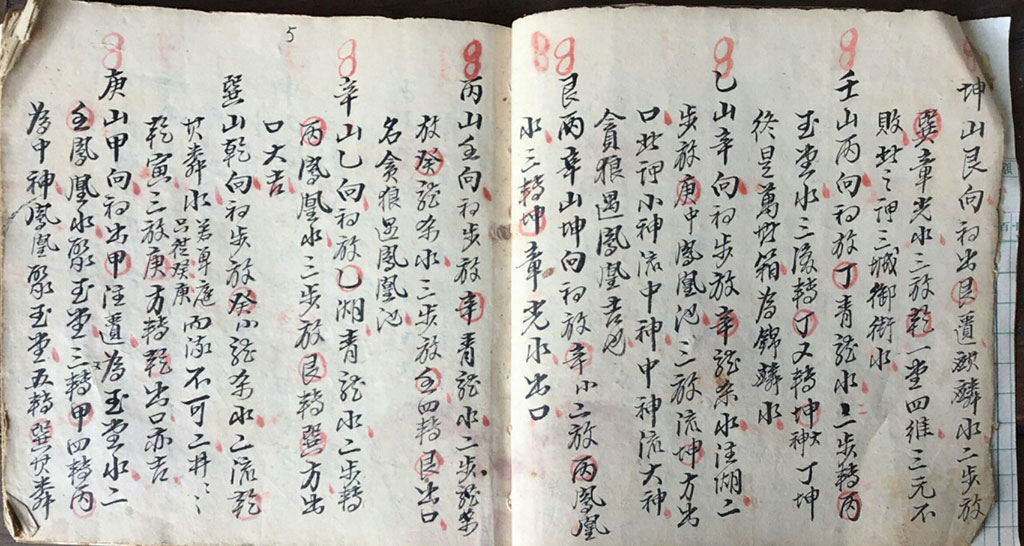 坤山艮向初出艮遇麒麟水二步放
巽章光水三放乾一堂四維三元不
敗此之神三城御街水
壬山丙向初放丁青龍水二步轉丙
玉堂水三後轉丁又轉坤大神丁坤
終是萬世箱為錦鱗水
乙山辛向初步放辛龍杀水注湖二
步放庚中鳳凰池三放流坤方出
口此神小神流中神中神流大神
貪狼遇鳳凰吉也
艮丙辛山坤向初放辛小二放丙鳳凰
水三轉坤章光水出口
5
丙山壬向初步放辛青龍水二步龍
放癸龍杀水三步放壬四轉艮出口
名貪狼遇鳳凰池
辛山乙向初放乙湖青龍水二步轉
丙鳳凰水三步放艮轉巽方出
口大吉
巽山乾向初步放癸小龍杀水二流乾
水若單庭
癸庚
不可二井
乾寅三放庚方轉乾出口亦吉
庚山甲向初出甲注遇為玉堂水二
壬鳳凰水聚玉堂三轉甲四轉丙
為中神鳳凰聚玉堂五轉巽